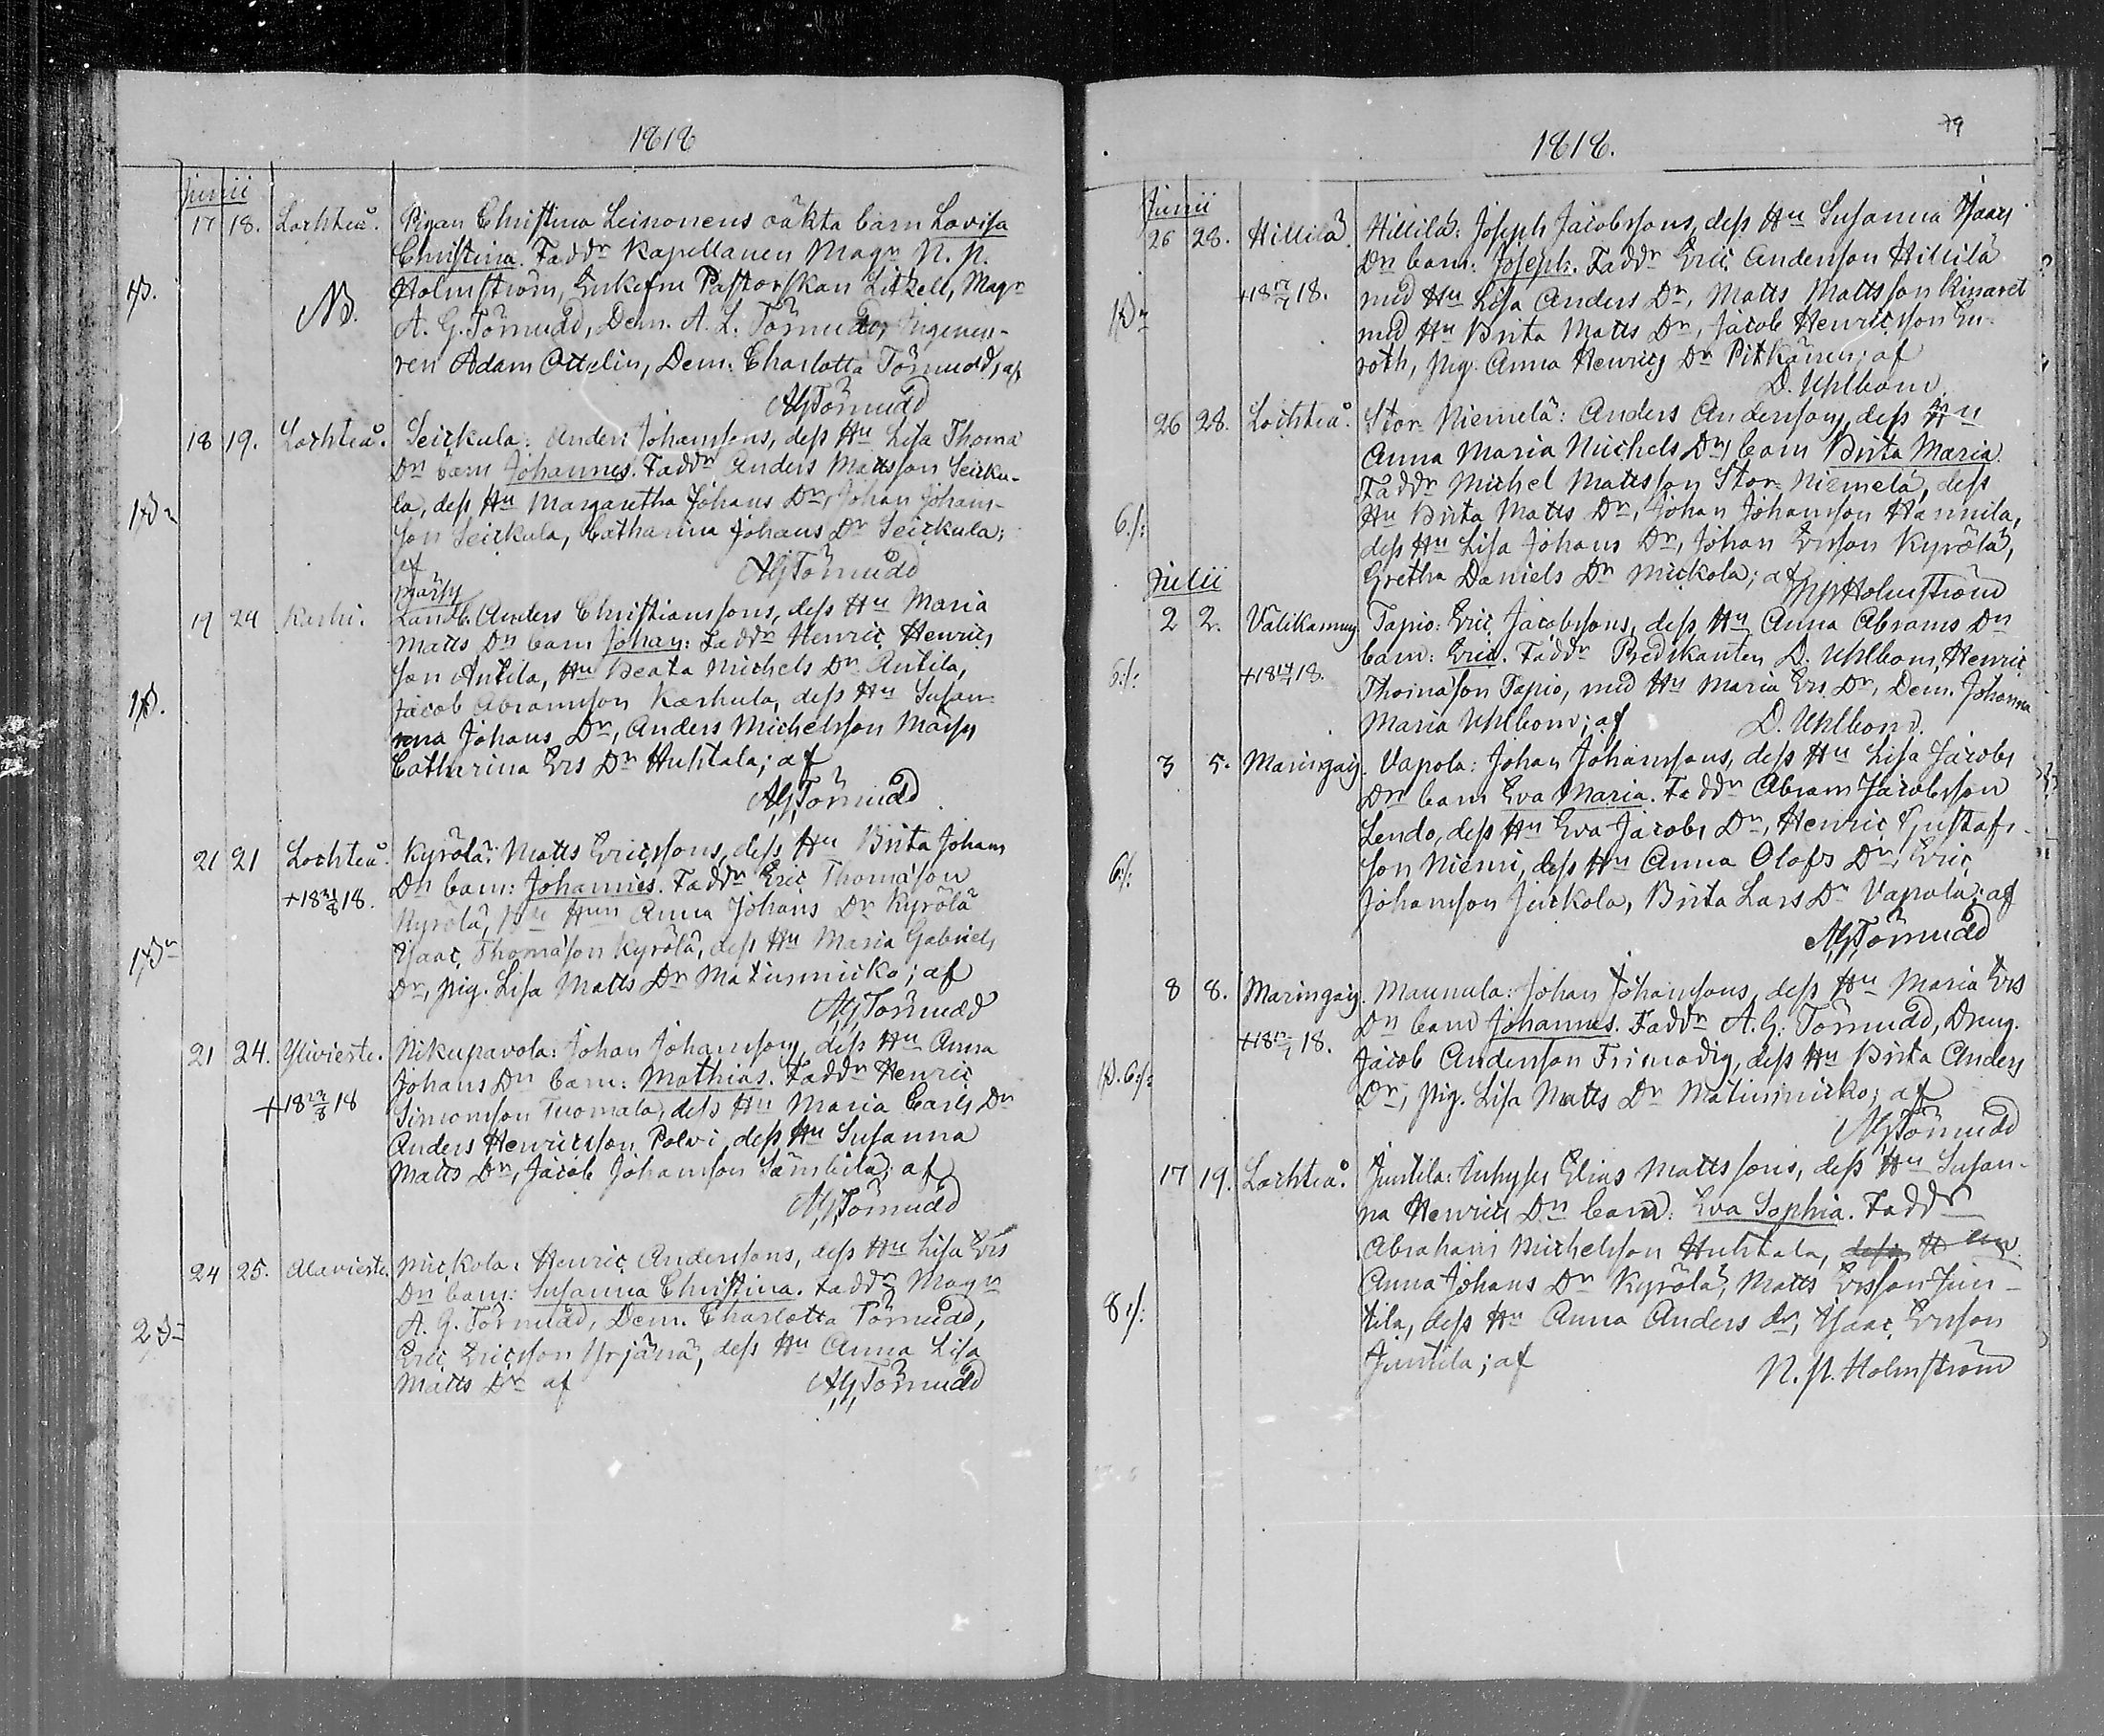 1818
Junii
17 18. Lochteå. Pigan Christina Leinonens oäkta barn Lovisa
Christina. Faddr Kapellanen Magr N. P.
NB. Holmström, Enkefru Pastorskan Litzell, Magr
A. G. Törnudd, Dem. A. L. Törnudd, Ingenieu-
ren Adam Ottelin, Dem. Charlotta Törnudd, af
AGTörnudd
18 19. Lochteå. Seickula: Anders Johanssons, dess Hu Lisa Thomæ
Dn barn Johannes. Faddr Anders Mattsson Seicku-
la, dess Hu Margaretha Johans Dr, Johan Johans-
son Seickula, Catharina Johans Dr Seickula;
af AGTörnudd
Märsy
19 24 Karhi. Landb. Anders Christianssons, dess Hu Maria
Matts Dn barn Johan: Faddr Henric Henrics
son Antila, Hu Beata Michels Dr Antila,
Jacob Abramsson Karhula, dess Hu Susan-
na Johans Dr, Anders Michelsson Märsy
Catharina Ers Dr Huhtala; af
AGTörnudd
21 21 Lochteå. Kyrölä: Matts Ericssons, dess Hu Brita Johans
Dn barn: Johannes. Faddr Eric Thomasson
+18 21/8 18. Kyrölä, Anna Johans Dr Kyrölä
Isaac Thomasson Kyrölä, dess Hu Maria Gabriels
Dr, pig. Lisa Matts Dr Matinmicko; af
AGTörnudd
21 24. Ylivieste. Nikupavola: Johan Johanssons, dess Hu Anna
Johans Dn barn: Mathias. Faddr Henric
+18 27/8 18 Simonsson Tuomala, dess Hu Maria Carls Dr
Anders Henricsson Polvi, dess Hu Susanna
Matts Dr, Jacob Johansson Sämbilä; af
AGTörnudd
24 25. Alavieste. Mickola: Henric Anderssons, dess Hu Lisa Ers
Dn barn: Susanna Christina. Faddr Magr
A. G. Törnudd, Dem. Charlotta Törnudd,
Eric Ericsson Yrjänä, dess Hu Anna Lisa
Matts Dr af AGTörnudd
1818.
79
Junii
26 28. Hillilä. Hillilä: Joseph Jacobssons, dess Hu Susanna Isaacs
Dn barn: Joseph. Faddr Eric Andersson Hillilä
+18 17/7 18. med Hu Lisa Anders Dr, Matts Mattsson Kinaret
med Hu Brita Matts Dr, Jacob Henricsson En-
roth, pig. Anna Henrics Dr Pitkänen; af
D. Uhlbom
26 28. Lochteå. Stor Niemelä: Anders Anderssons, dess Hu
Anna Maria Michels Dn barn Brita Maria
Faddr Michel Mattsson Stor Niemelä, dess
6./: Hu Brita Matts Dr, Johan Johansson Hannila,
dess Hu Lisa Johans Dr, Johan Ersson Kyrölä,
Gretha Daniels Dr Mickola; af NPHolmström
Julii
2 2. Välikannug. Tapio: Eric Jacobssons, dess Hu Anna Abrams Dn
barn: Eric. Faddr Predikanten D. Uhlbom, Henric
Thomasson Tapio, med Hu Maria Ers Dr, Dem. Johanna
Maria Uhlbom; af D. Uhlbom.
3 5. Maringais. Vapola: Johan Johanssons, dess Hu Lisa Jacobs
Dn barn Eva Maria. Faddr Abram Jacobsson
Lendo, dess Hu Eva Jacobs Dr, Henric Gustafs-
son Niemi, dess Hu Anna Olofs Dr, Eric
6/: Johansson Juckola, Brita Lars Dr Vapola; af
AGTörnudd
8 8. Maringais. Maunula: Johan Johanssons dess Hu Maria Ers
Dn barn Johannes. Faddr A. G. Törnudd, Dreng.
Jacob Andersson Frimodig, dess Hu Brita Anders
Dr, pig. Lisa Matts Dr Matinmicko; af
AGTörnudd
17 19. Lochteå. Juntila: Inhyses Elias Mattssons, dess Hu Susan-
na Henrics Dn barn: Eva Sophia. Faddr
Abraham Michelsson Huhtala,
Anna Johans Dr Kyrölä, Matts Ersson Jun-
8./: tila, dess Hu Anna Anders dr, Isaac Ersson
Juntila; af N. P. Holmström